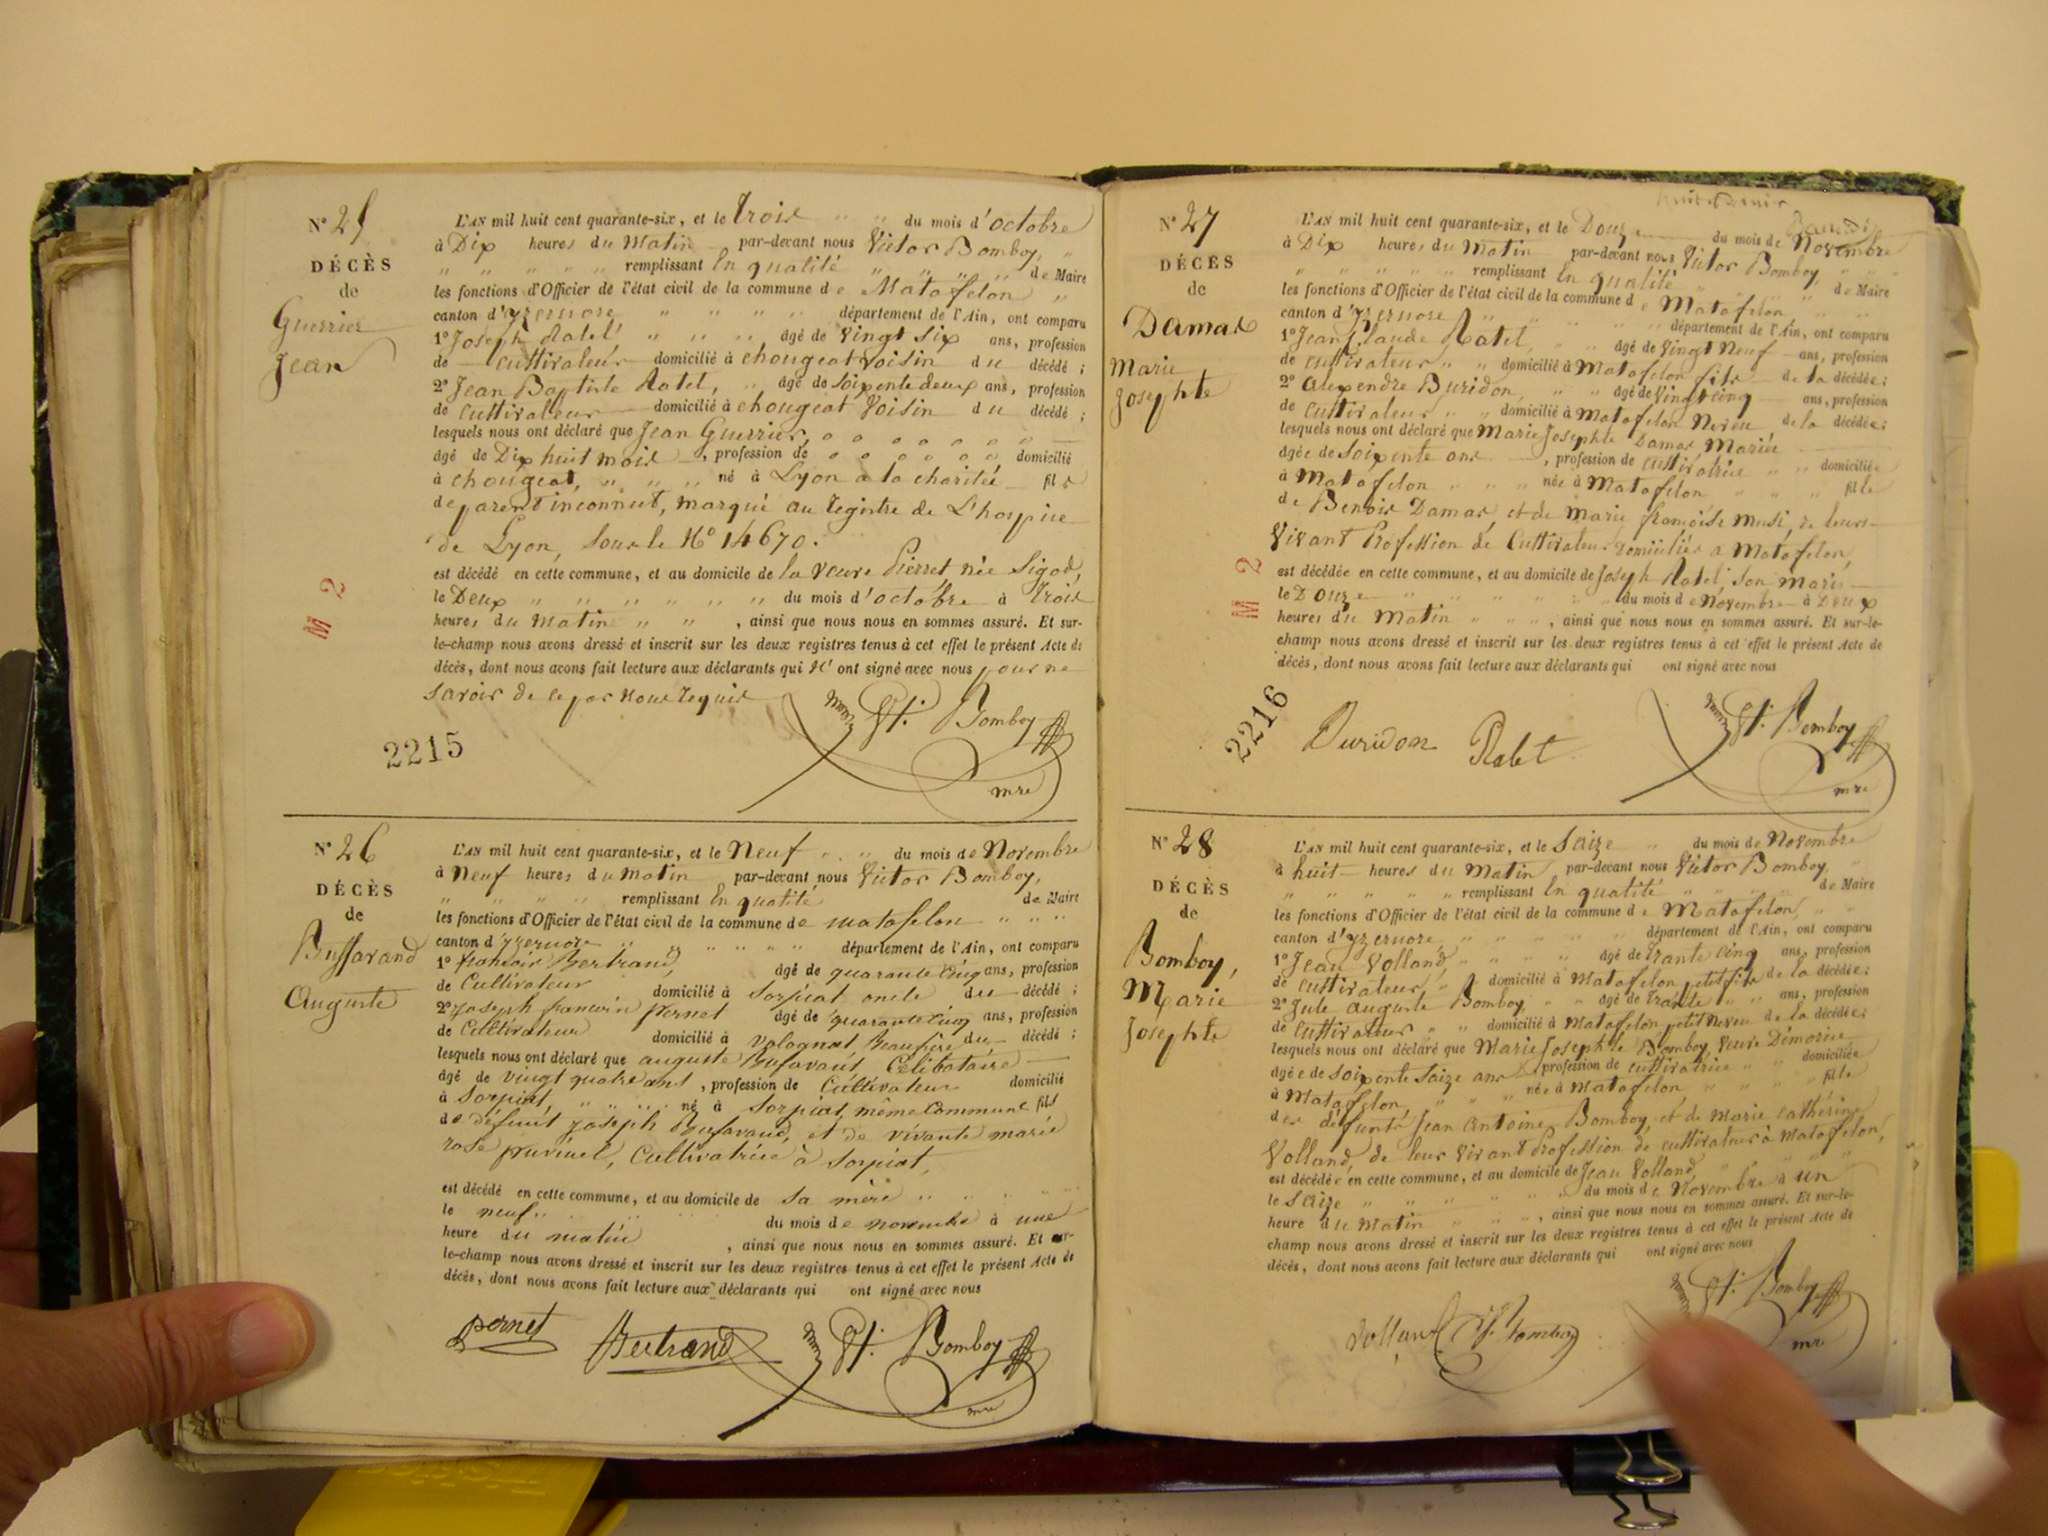 N° 25
DÉCÈS
de
Guerrier
Jean
L'AN mil huit cent quarante-six, et le trois " " du mois d'octobre
à Dix heures du Matin par-devant nous Victor Bomboy, "
" " " " " remplissant En qualité " " " " de Maire
les fonctions d'Officier de l'état civil de la commune de Matafelon "
canton d'yzernore " " " " " département de l'Ain, ont comparu
1° Joseph Ratel " " " , âgé de Vingt Six ans, profession
de cultivateur domicilié à chougeat Voisin du décédé ;
2° Jean Baptiste Ratel, " âgé de Soixente deux ans, profession
de cultivateur domicilié à chougeat Voisin du décédé ;
lesquels nous ont déclaré que Jean Guerrier,
âgé de Dix huit mois , profession de domicilié
à chougeat, " " " né à Lyon a la charité fils
de parent inconnut, marqué au registre de L'hospice
de Lyon, Sous le N° 14670.
est décédé en cette commune, et au domicile de la veuve Pierret née Sigod,
le Deux " " " " " " du mois d'octobre à trois
heures du Matin " " , ainsi que nous nous en sommes assuré. Et sur-
le-champ nous avons dressé et inscrit sur les deux registres tenus à cet effet le présent Acte de
décès, dont nous avons fait lecture aux déclarants qui N' ont signé avec nous pour ne
Savoir de ce par nous requis
Bomboy
mre
M 2
2215
N° 26
DÉCÈS
de
Buffavand
Auguste
L'AN mil huit cent quarante-six, et le Neuf " " du mois de Novembre
à Neuf heures du matin par-devant nous Victor Bomboy,
" " " " remplissant En qualité de Maire
les fonctions d'Officier de l'état civil de la commune de matafelon " " "
canton d'yzernore " " " " " " département de l'Ain, ont comparu
1° françois Bertrand, âgé de quarante cinq ans, profession
de Cultivateur domicilié à Sorpiat oncle du décédé ;
2° joseph françois pernet âgé de quarante cinq ans, profession
de Cultivateur domicilié à volognat Beaufrère du décédé ;
lesquels nous ont déclaré que auguste Célibataire
âgé de vingt quatre ans , profession de Cultivateur domicilié
à Sorpiat, " " " né à Sorpiat, même Commune fils
de défunt joseph et de vivante marie
rose Cultivatrice à Sorpiat,
est décédé en cette commune, et au domicile de sa mère " " "
le neuf " du mois de novembre à une
heure du matin , ainsi que nous nous en sommes assuré. Et sur-
le-champ nous avons dressé et inscrit sur les deux registres tenus à cet effet le présent Acte de
décès, dont nous avons fait lecture aux déclarants qui ont signé avec nous
pernet Bertrand Bomboy
mre
N° 27
DÉCÈS
de
Damas
Marie
Josephte
L'AN mil huit cent quarante-six, et le Douze du mois de Novembre
à Dix heures du Matin par-devant nous Victor Bomboy, " "
" " " " " remplissant En qualité " " de Maire
les fonctions d'Officier de l'état civil de la commune de Matafelon " "
canton d'yzernore " " " " " département de l'Ain, ont comparu
1° Jean Claude Ratel, " " âgé de Vingt Neuf ans, profession
de cultivateur " " domicilié à Matafelon fils de la décédée ;
2° alexendre Buridon, " " âgé de Vingt cinq ans, profession
de cultivateur " " domicilié à Matafelon Neveu de la décédée ;
lesquels nous ont déclaré que Marie Josephte Damas, Mariée
âgée de Soixente ans , profession de cultivatrice " " domiciliée
à Matafelon " " " née à Matafelon " " " fille
de Benoit Damas et de Marie françoise de leurs
Vivant Profession de Cultivateur domiciliés a Matafelon,
est décédée en cette commune, et au domicile de Joseph Ratel, Son mari
le Douze " " " " " " du mois de Novembre à Deux
heures du Matin " " " , ainsi que nous nous en sommes assuré. Et sur-le-
champ nous avons dressé et inscrit sur les deux registres tenus à cet effet le présent Acte de
décès, dont nous avons fait lecture aux déclarants qui ont signé avec nous
Buridon Ratel Bomboy
mre
M 2
2216
N° 28
DÉCÈS
de
Bomboy,
Marie
Josephte
L'AN mil huit cent quarante-six, et le Saize " du mois de Novembre
à huit heures du Matin par-devant nous Victor Bomboy, "
" " " " " remplissant En qualité " " " de Maire
les fonctions d'Officier de l'état civil de la commune de Matafelon, " "
canton d'yzernore, " " " " " département de l'Ain, ont comparu
1° Jean Volland, " " " " âgé de trante cinq ans, profession
de cultivateur, " " domicilié à Matafelon petit fils de la décédée ;
2° Jule auguste Bomboy " " âgé de trante " " ans, profession
de cultivateur " " domicilié à Matafelon petit Neveu de la décédée ;
lesquels nous ont déclaré que Marie Josephte Bomboy, Veuve
âgée de Soixente Saize ans , profession de cultivatrice " " domiciliée
à Matafelon, " " " née à Matafelon, " " " fille
des défunts Jean Antoine Bomboy, et de Marie cathérine
Volland, de leur Vivant Profession de cultivateur à Matafelon,
est décédée en cette commune, et au domicile de Jean Volland, " " "
le Saize " " " " " du mois de Novembre à un
heure du Matin " " " , ainsi que nous nous en sommes assuré. Et sur-le-
champ nous avons dressé et inscrit sur les deux registres tenus à cet effet le présent Acte de
décès, dont nous avons fait lecture aux déclarants qui ont signé avec nous
Volland Bomboy Bomboy
mre